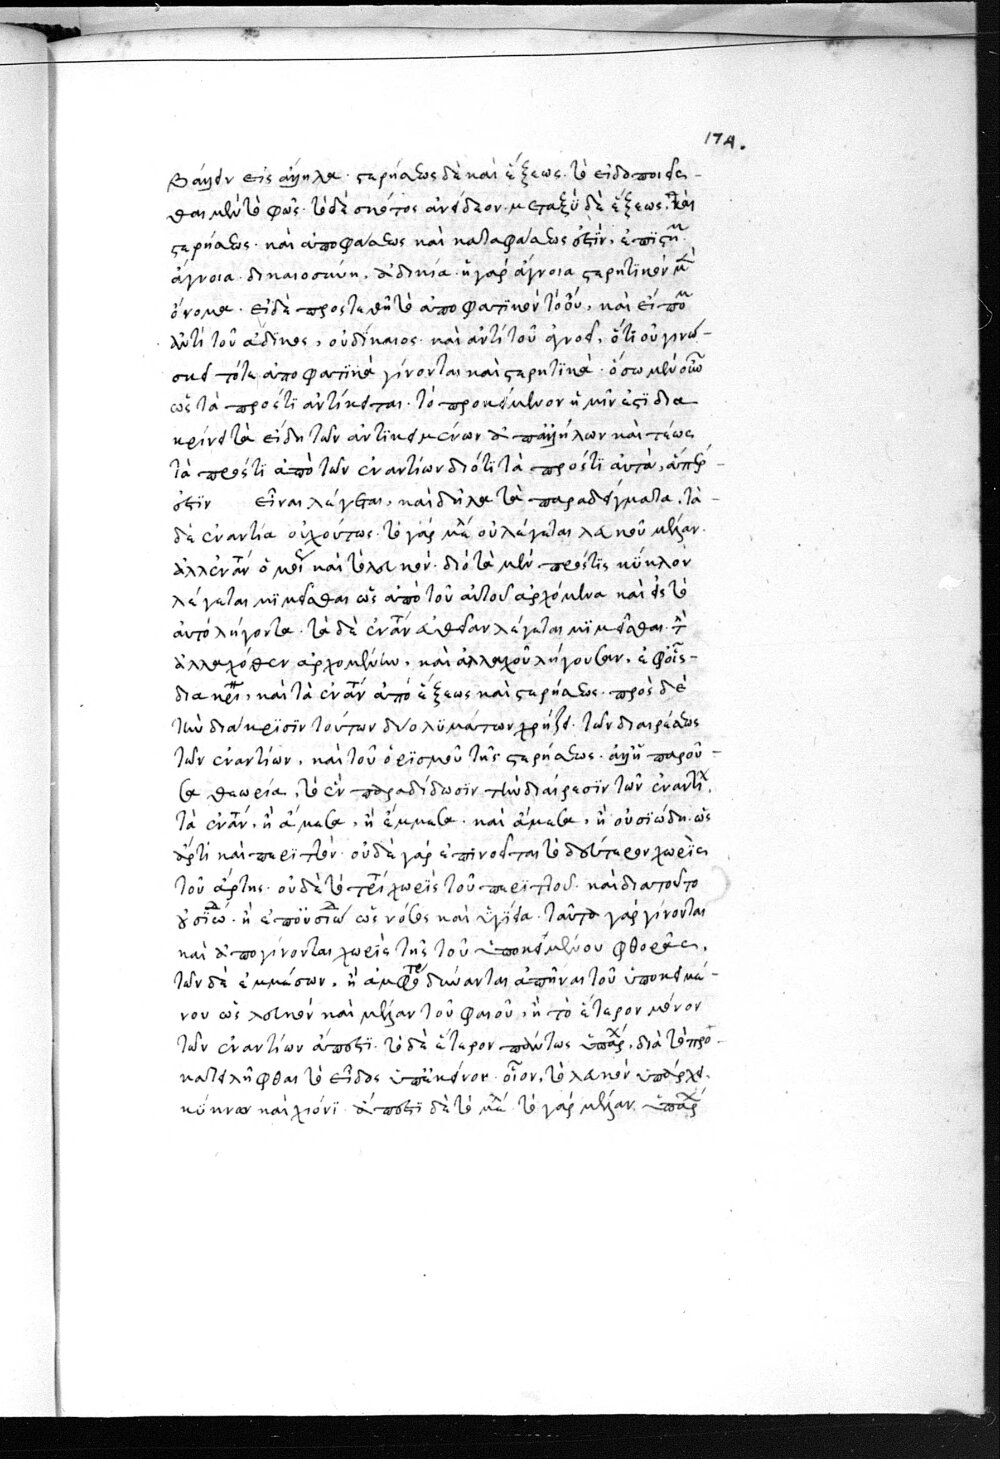 174.
βάλλειν εἰς ἄλληλα. στερήσεως δὲ καὶ ἕξεως. τὸ εἰδοποιεῖσ-
θαι μὲν τὸ φῶς. τὸ δὲ σκότος ἀνείδεον. μεταξὺ δὲ ἕξεως καὶ
στερήσεως. καὶ ἀποφάσεως καὶ καταφάσεως ἐστὶν,
ἄγνοια. δικαιοσύνη, ἀδικία. ἡ γὰρ ἄγνοια στερητικὸν
ὄνομα. εἰ δὲ προστεθῆ τὸ ἀποφατικὸν τὸ οὐ, καὶ
ἀντὶ τοῦ ἄδικος, οὐ δίκαιος. καὶ ἀντὶ τοῦ ἀγνοεῖ, ὅτι οὐ γινώ-
σκει τότε ἀποφατικὰ γίνονται καὶ στερητικά. ὅσα μὲν οὖν
ὡς τὰ πρός τι ἀντίκειται. τὸ προκείμενον ἡμῖν ἐστὶ δια
κρίνειν τὰ εἴδη τῶν ἀντικειμένων ἀπ' ἀλλήλων καὶ τέως
τὰ πρός τι ἀπὸ τῶν ἐναντίων διότι τὰ πρός τι αὐτὰ, ἅπερ
ἐστὶν εἶναι λέγεται, καὶ δῆλα τὰ παραδείγματα, τὰ
δὲ ἐναντία οὐχ οὕτως. τὸ γὰρ οὐ λέγεται λευκοῦ μέλαν.
ἀλλ' ἐναντίον καὶ τὸ λευκόν. διὸ τὰ μὲν πρός τι κύκλον
λέγεται κινεῖσθαι ὡς ἀπὸ τοῦ αὐτοῦ ἀρχόμενα καὶ εἰς τὸ
αὐτὸ λήγοντα. τὰ δὲ ἐναντία εὐθεῖαν λέγεται κινεῖσθαι.
ἀλλαχόθεν ἀρχομένην, καὶ ἀλλαχοῦ λήγουσαν, ἐφ' οἷς
διακρίνει, καὶ τὰ ἐναντία ἀπὸ ἕξεως καὶ στερήσεως. πρὸς δὲ
τὴν διάκρισιν τούτων δύο λημμάτων χρήζει. τῶν διαιρέσεως
τῶν ἐναντίων, καὶ τοῦ ὁρισμοῦ τῆς στερήσεως. παροῦ-
σα θεωρία, τὸ ἓν παραδίδωσιν τὴν διαίρεσιν τῶν ἐναντίων.
τὰ ἐναντία, ἢ ἄμεσα, ἢ ἔμμεσα. καὶ ἄμεσα, ἢ οὐσιώδη. ὡς
ἄρτι καὶ περιττόν. οὐδὲ γὰρ ἐπινοεῖται τὸ δεύτερον χωρὶς
τοῦ ἄρτιος. οὐδὲ τὸ τρία χωρὶς τοῦ περιττοῦ. καὶ διὰ τοῦτο
ἢ ἐπουσιώδη ὡς νόσος καὶ ὑγίεια. ταῦτα γὰρ γίνονται
καὶ ἀπογίνονται χωρὶς τῆς τοῦ ὑποκειμένου φθορᾶς,
τῶν δὲ ἐμμέσων, ἢ ἀμφότερα δύνανται ἀπεῖναι τοῦ ὑποκειμέ-
νου ὡς λευκὸν καὶ μέλαν τοῦ φαιοῦ, ἢ τὸ ἕτερον μόνον
τῶν ἐναντίων ἄπεστι. τὸ δὲ ἕτερον πάντως ὑπάρχει, διὰ τὸ προ-
κατειλῆφθαι τὸ εἶδος ὑπ' ἐκείνου. οἷον, τὸ λευκὸν ὑπάρχει
κύκνω καὶ χιόνι. ἄπεστι δὲ τὸ τὸ γὰρ μέλαν ὑπάρχει